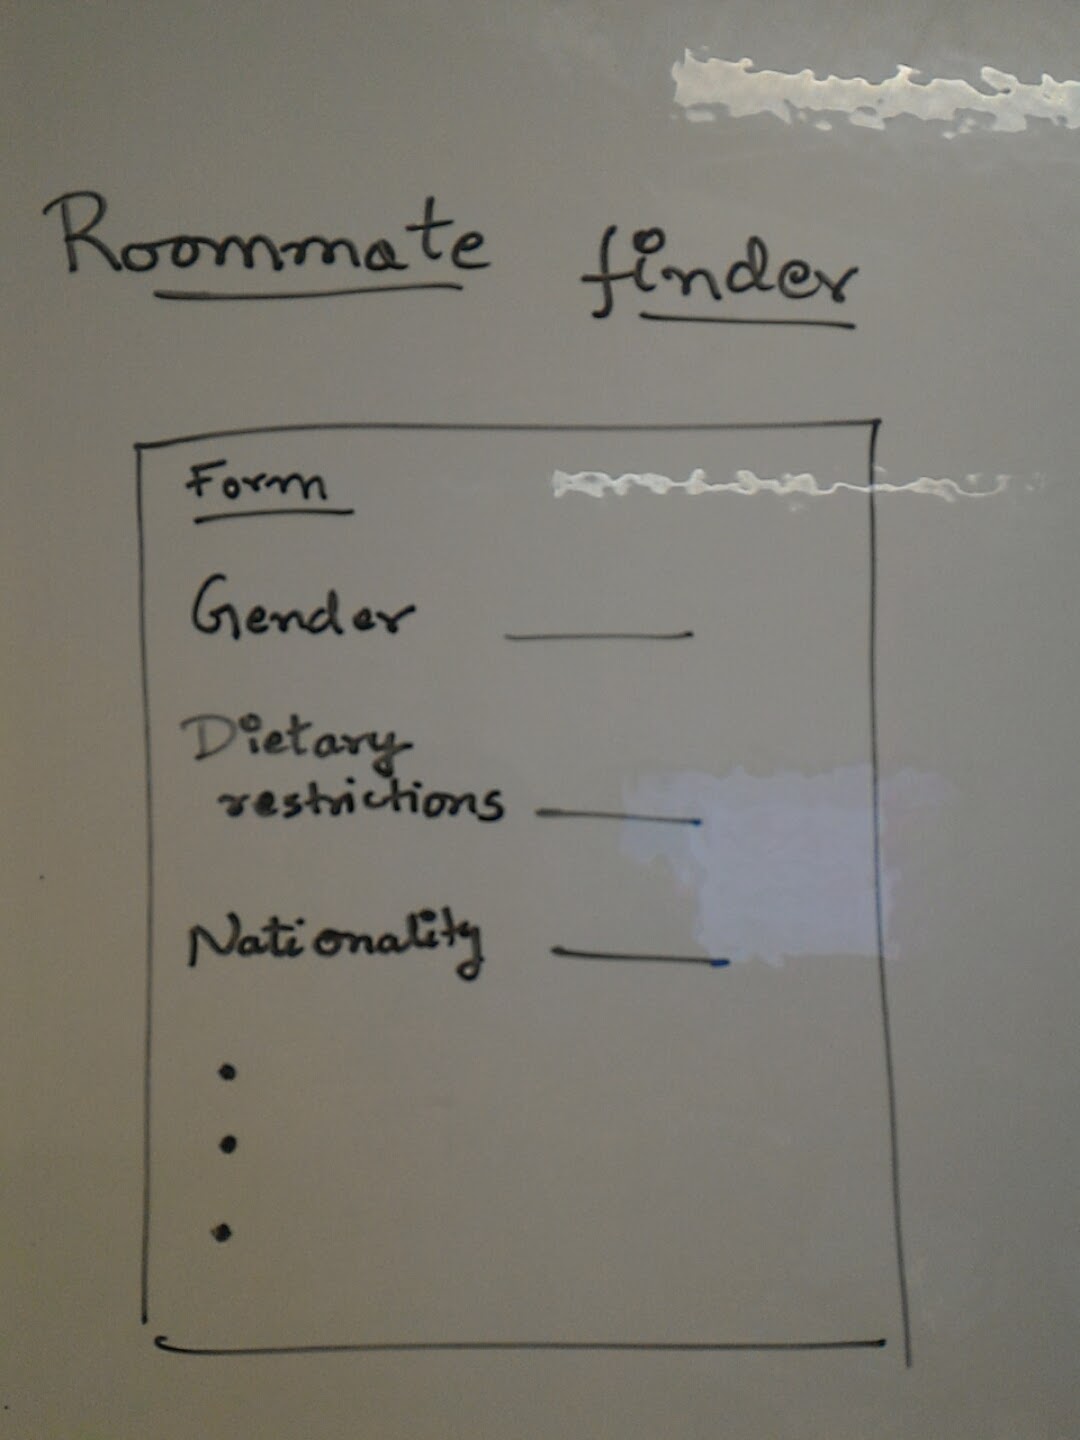 Roommate finder
Form
Gender
Dietary
restrictions
Nationality